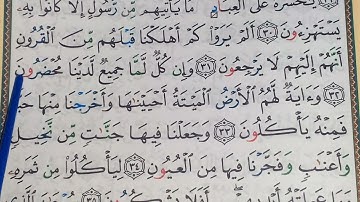 يَٰحَسْرَةً عَلَى ٱلْعِبَادِ ۚ مَا يَأْتِيهِم مِّن رَّسُولٍ إِلَّا كَانُوا۟ بِهِۦ
يَسْتَهْزِءُونَ ٣٠ أَلَمْ يَرَوْا۟ كَمْ أَهْلَكْنَا قَبْلَهُم مِّنَ ٱلْقُرُونِ
أَنَّهُمْ إِلَيْهِمْ لَا يَرْجِعُونَ ٣١ وَإِن كُلٌّ لَّمَّا جَمِيعٌ لَّدَيْنَا مُحْضَرُونَ
٣٢ وَءَايَةٌ لَّهُمُ ٱلْأَرْضُ ٱلْمَيْتَةُ أَحْيَيْنَٰهَا وَأَخْرَجْنَا مِنْهَا حَبًّا
فَمِنْهُ يَأْكُلُونَ ٣٣ وَجَعَلْنَا فِيهَا جَنَّٰتٍ مِّن نَّخِيلٍ
وَأَعْنَٰبٍ وَفَجَّرْنَا فِيهَا مِنَ ٱلْعُيُونِ ٣٤ لِيَأْكُلُوا۟ مِن ثَمَرِهِۦ
وَمَا عَمِلَتْهُ أَيْدِيهِمْ ۖ أَفَلَا يَشْكُرُونَ ٣٥ سُبْحَٰنَ ٱلَّذِى